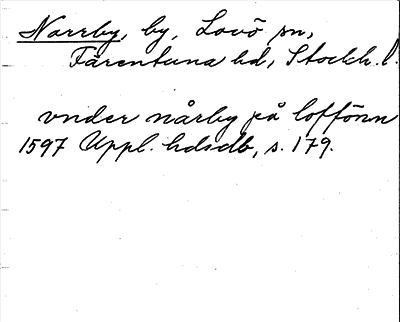 Norrby, by, Lovö sn,
Färentuna hd, Stockh. l.
vnder nårby på loffönn
1597 Uppl. hdsdb, s. 179.